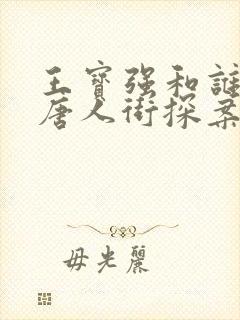 王寳强和誰
唐人街探案
毋光麗